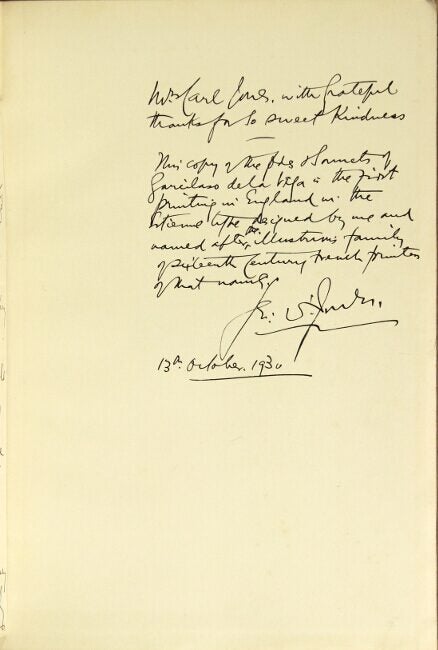 Mrs Carl Jones, with grateful
thanks for so sweet kindness
This copy of the Odes & Sonnets of
Garcilaso de la Vega is the first
printing in England in the
Estienne type designed by me and
named after the illustrious family
of sixteenth Century French printers
of that name.
Geo. W. Jones.
13th October. 1930